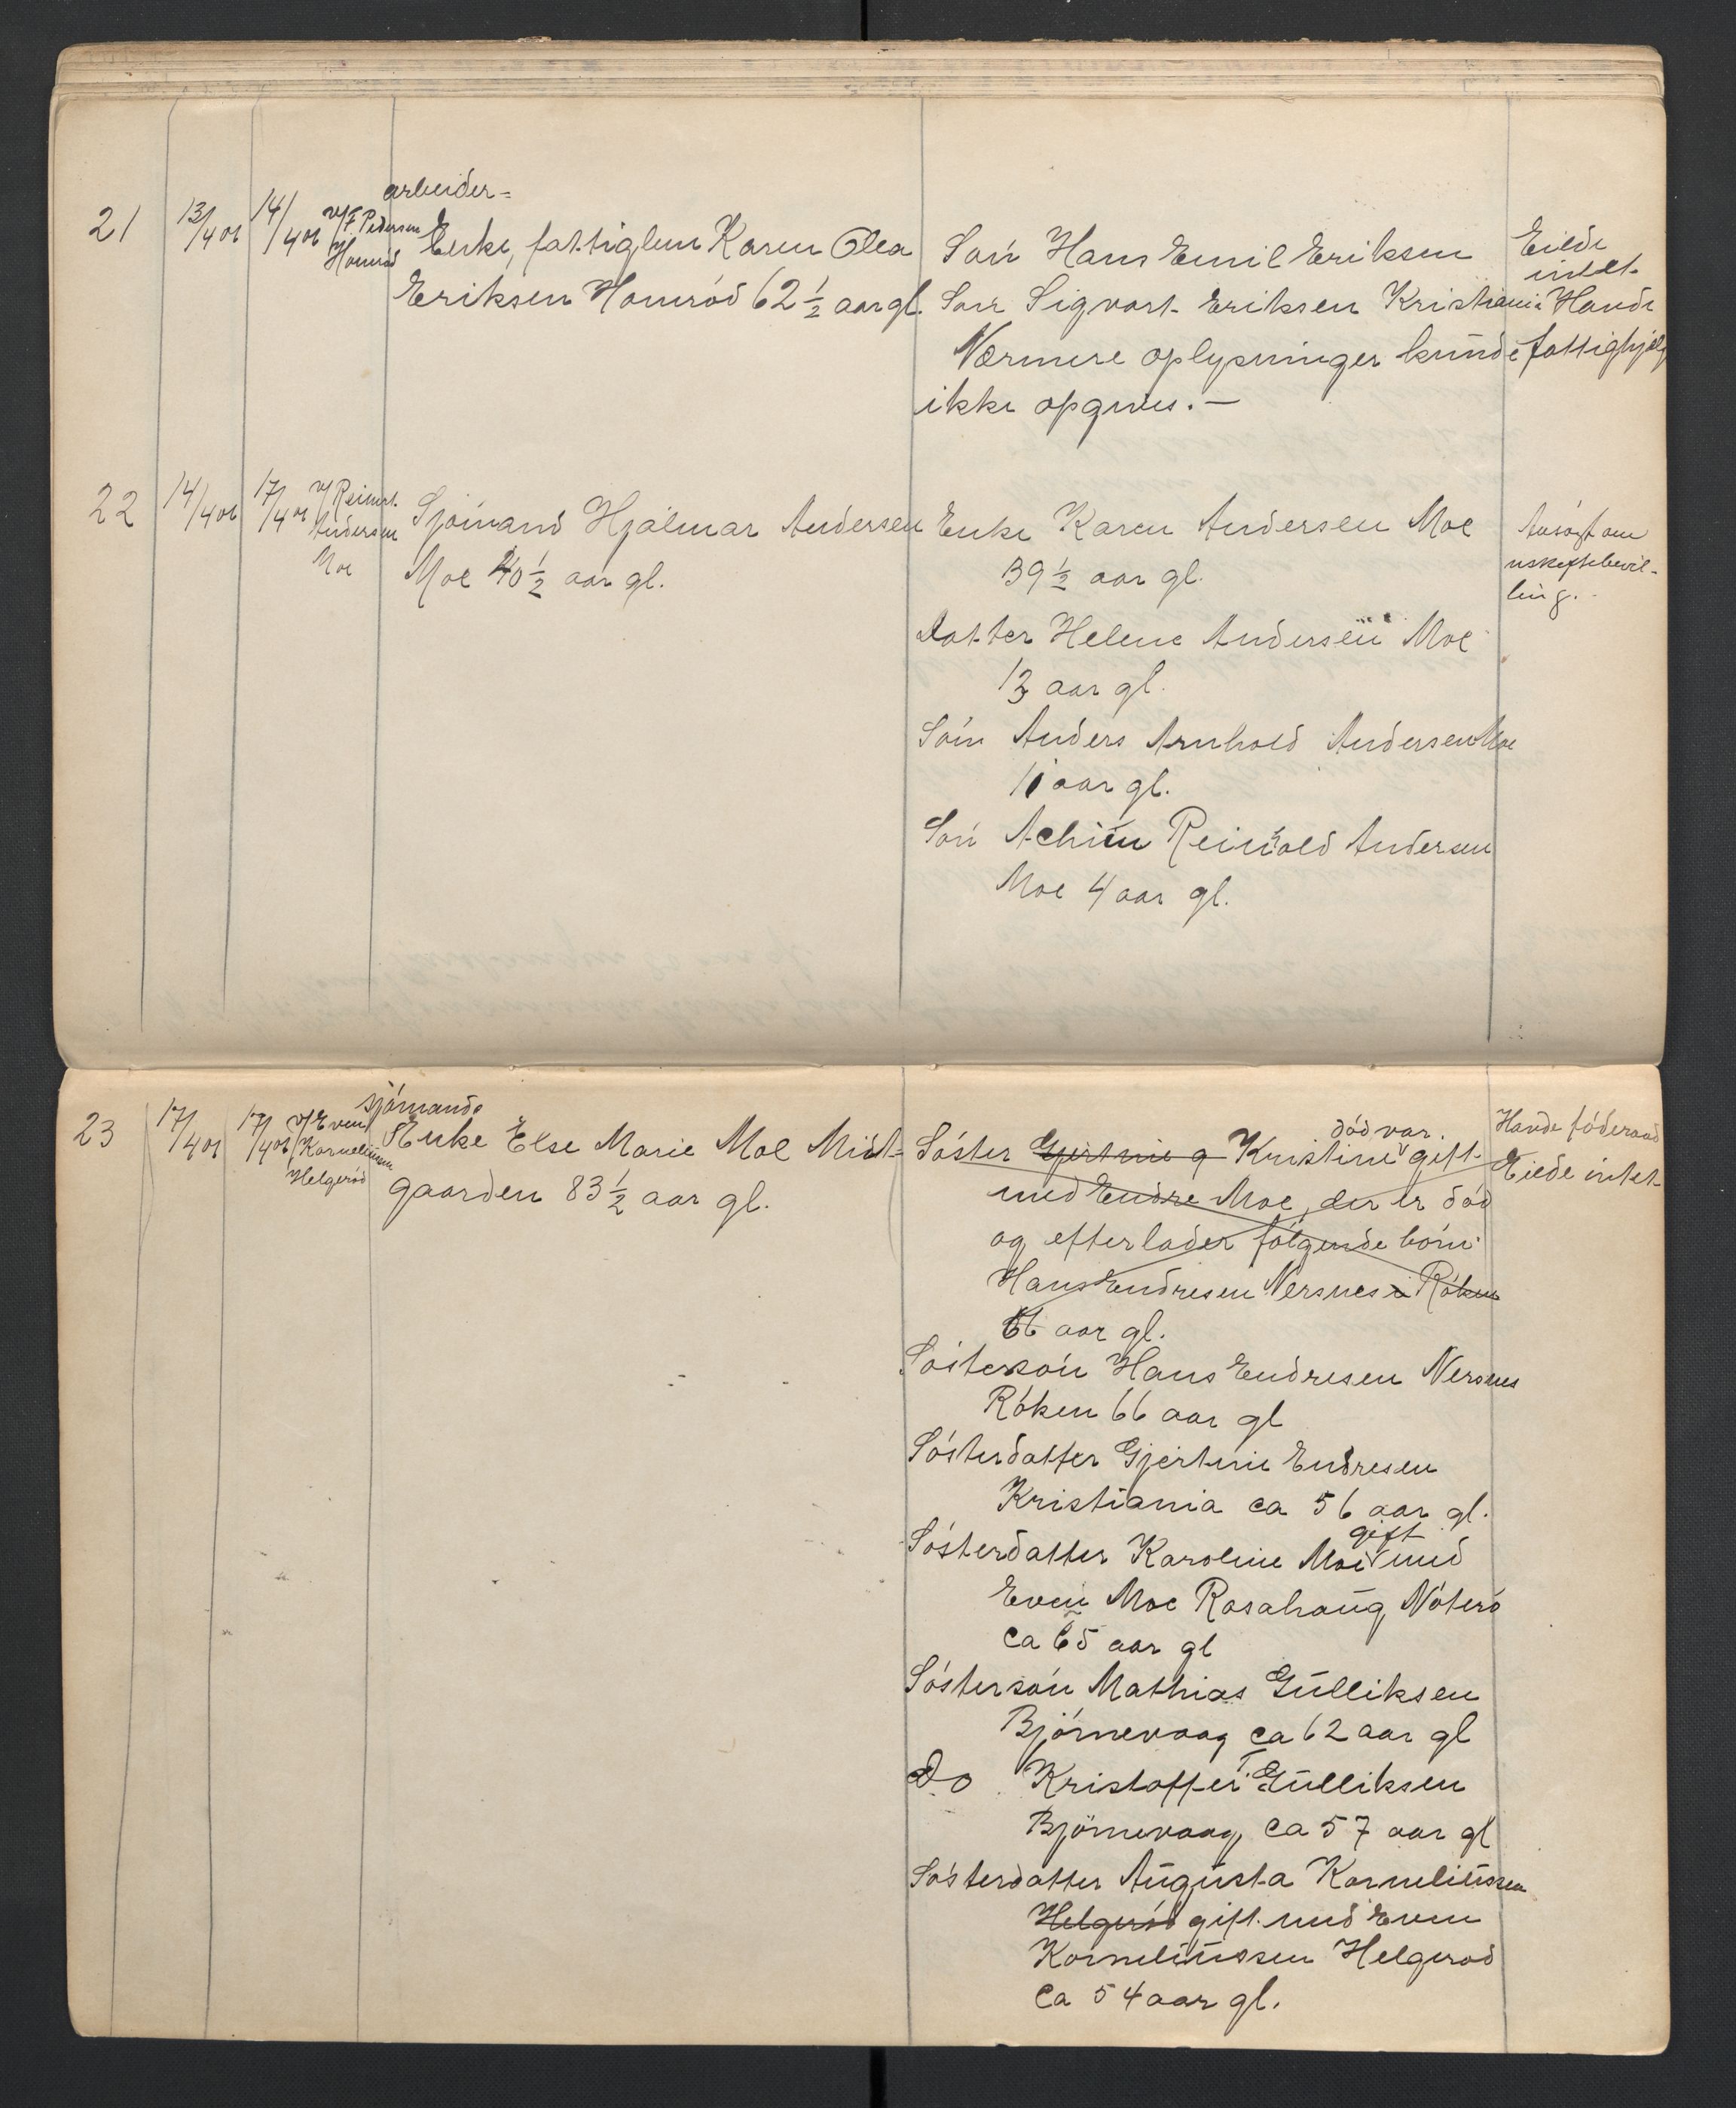 21 13/4 06 14/4 06 v/ F. Pedersen Homröd
arbeider-
Enke, fattiglem Karen Olea
Eriksen Homröd 62 1/2 aar gl.
Sön Hans Emil Eriksen
Sön Sigvart Eriksen Kristiania
Nærmere oplysninger kunde
ikke opgives. —
Eiede
intet.
Havde
fattighjelp
22 14/4 06 17/4 06 v/ Reinert.
Andersen
Moe
Sjömand Hjalmar Andersen
Moe 40 1/2 aar gl.
Enke Karen Andersen Moe
39 1/2 aar gl.
Datter Helene Andersen Moe
13 aar gl.
Sön Anders Arnhold Andersen Moe
11 aar gl.
Sön Achim Reinhold Andersen
Moe 4 aar gl.
Ansögt om
uskiftebevil-
ling.
23 17/4 06 17/4 06 v/ Even
Korneliussen
Helgeröd
sjömands
Enke Else Marie Moe Midt-
gaarden 83 1/2 aar gl.
död var.
Söster Gjertine g Kristine gift
med Endre Moe, der er död
og efterlader fölgende börn:
Hans Endresen Nersnes i Röken
66 aar gl.
Söstersön Hans Endresen Nersnes
Röken 66 aar gl
Sösterdatter Gjertine Endresen
Kristiania ca 56 aar gl.
Sösterdatter Karoline Moe gift med
Even Moe Rosahaug, Nöterö
ca 65 aar gl
Söstersön Mathias Gulliksen
Björnevaag ca 62 aar gl
Do Kristoffer T. Gulliksen
Björnevaag ca 57 aar gl
Sösterdatter Augusta Korneliussen
Helgeröd gift med Even
Korneliussen Helgeröd
ca 54 aar gl.
Havde föderaad
Eiede intet